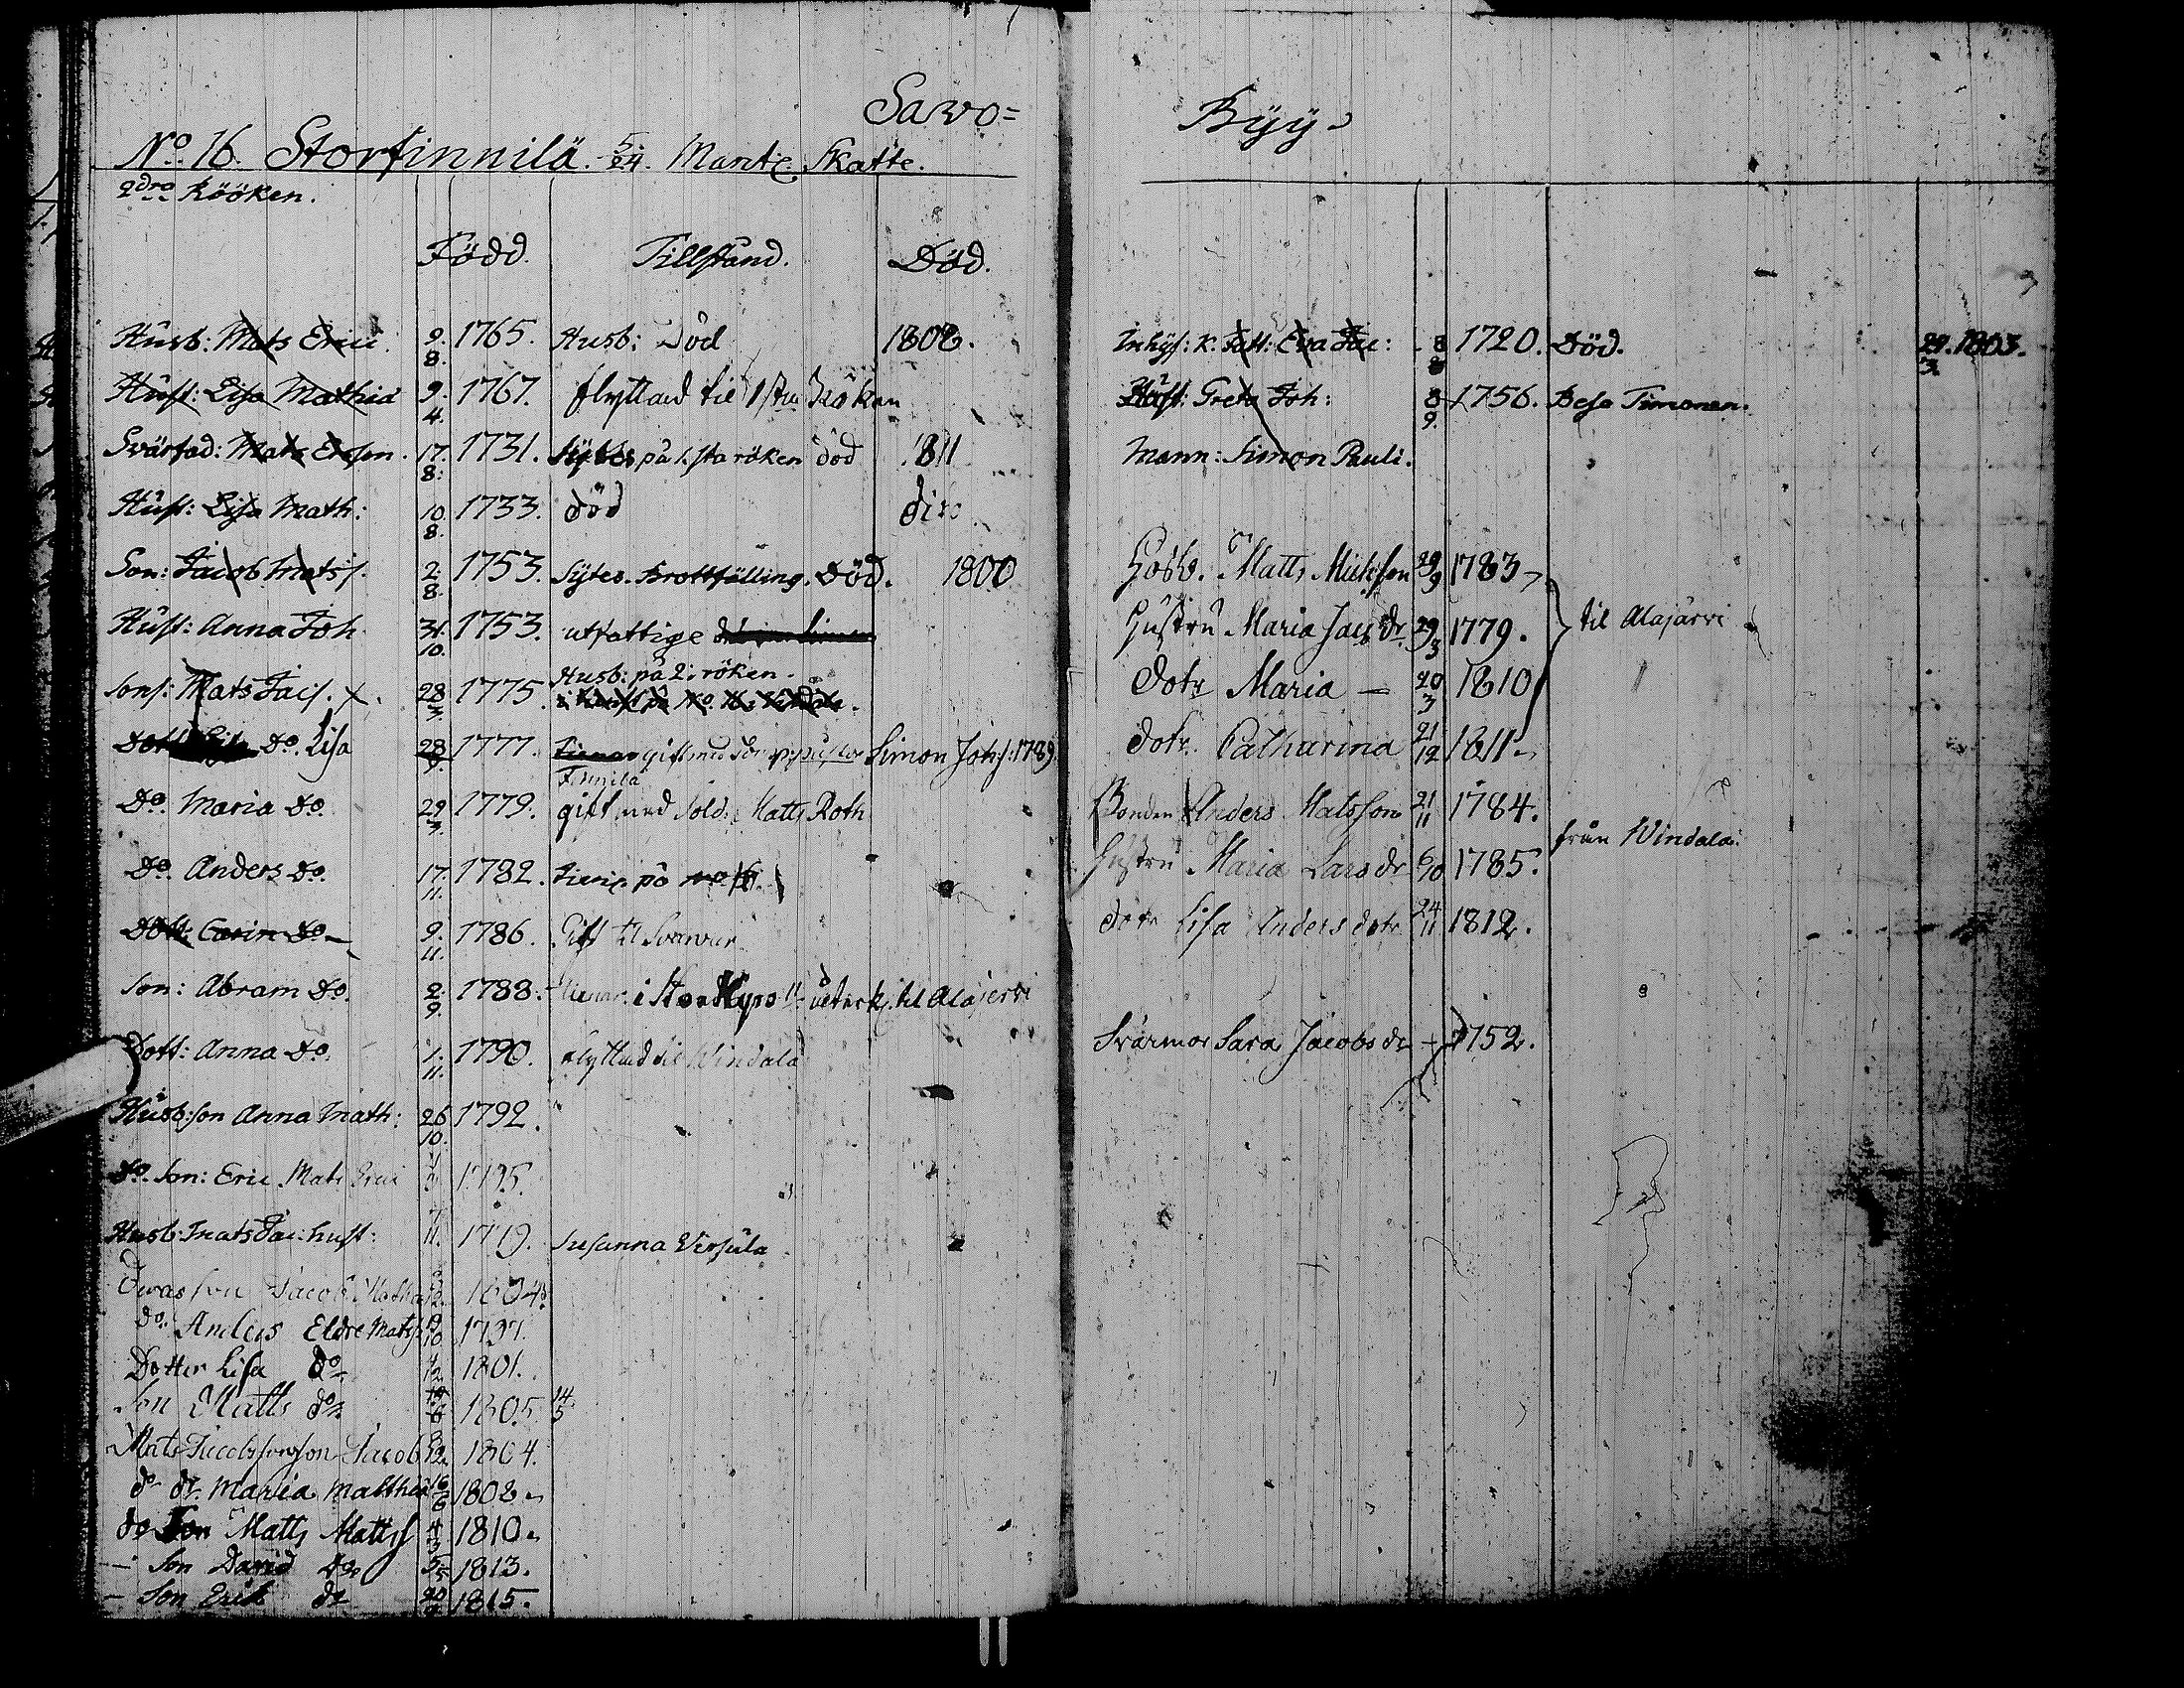 Sawo=
No. 16. Storfinnilä. 5/24. Mantl. Skatte.
2dra Rööken.
Född. Tillstånd. Död.
Husb: Mats Erici 9/8. 1765. Husb: Död 1808.
Hust: Lisa Mathia 9/4. 1767. flyttad til 1sta Röken
Svärfad: Mats Ersson. 17/8: 1731. Sytes på 1sta röken död 1811
Hust: Lisa Math: 10/8. 1733. död dito
Son: Jacob Matss. 2/8. 1753. Sytes. Brottfälling. Död. 1800
Hust: Anna Joh 31/10. 1753. utfattige
Husb: på 2: röken.
Sons: Mats Jacs. 28/3. 1775.
Dott Do. Lisa 28/9. 1777. gift med Simon Johs: 1789.
Finnilä
Do. Maria Do. 29/3. 1779. gift med Sold: Matts Roth
Do. Anders Do. 17/11. 1782. på
Dott: Carin Do. 9/11. 1786. Gift til
Son: Abram Do. 2/9. 1788. i Storkyro til Alajerwi
Dott: Anna Do. 1/11. 1790. flyttad til Windala
Husb:son Anna Math: 26/10. 1792.
Do. Son: Eric Mats Erici 1795.
Husb: Mats Jac: hust: 11. 1779. Susanna Versula
Jacob 1804.
do. Anders Eldre Mats 19/10 1797.
Dotter Lisa do 1801.
Son Matts do. 1805. 14/5
Mats Jacobssons son Jacob 1804.
do dr. Maria Matthia 16/6 1808.
do Son Matts Mattss 4/3 1810.
– Son David Do 5/5 1813.
– Son Erik do 20 1815.
Byy.
Inhys: K. Fatt: Eva Jac: 8/8 1720. Död. 29/3. 1803.
Hust: Greta Joh: 8/9. 1756. Besa Timonen.
Mann: Simon Pauli.
Hosb. Matts Michson 29/9 1783
Hustru Maria Jacs dr 29/3 1779. til Alajärvi
Dotr Maria – 20/3 1810
Dotr. Catharina 21/12 1811
Bonden Anders Matsson 21/11 1784.
från Windala.
Hustru Maria Lars dr 6/10 1785.
Dotr Lisa Anders dotr 24/11 1812.
Svärmor Sara Jacobs dr – 1752.